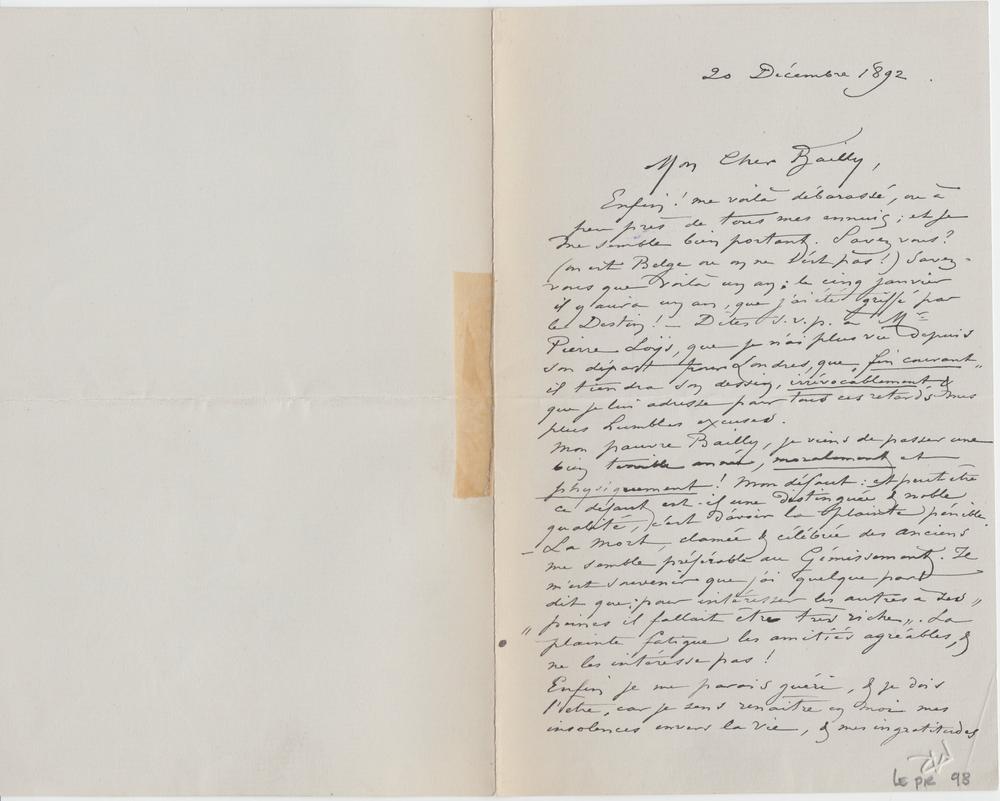 20 Décembre 1892.
Mon Cher Bailly,
Enfin! me voilà débarassé, ou à
peu près de tous mes ennuis; et je
me semble bien portant. Savez vous?
(on est Belge ou on ne l'est pas!) Savez-
vous que voilà un an; le cinq janvier
il y aura un an, que j'ai été griffé par
le Destin! — Dites s.v.p. à Mr
Pierre Loüys, que je n'ai plus vu depuis
son départ pour Londres, que "fin courant"
il tiendra son dessin, irrévocablement &
que je lui adresse pour tous ces retards mes
plus humbles excuses.
Mon pauvre Bailly, je viens de passer une
bien terrible année, moralement et
physiquement! Mon défaut: et peut être
ce défaut est-il une distinguée & noble
qualité, c'est d'avoir la plainte pénible.
— La Mort, clamée & célébrée des anciens
me semble préférable au Gémissement. Je
m'est souvenir que j'ai quelque part
dit que: pour intéresser les autres à ses "
" peines il fallait être très riche". La
plainte fatigue les amitiés agréables, &
ne les intéresse pas!
Enfin je me parais guéri, & je dois
l'être, car je sens renaître en moi mes
insolences envers la vie, & mes ingratitudes
LE PR 98